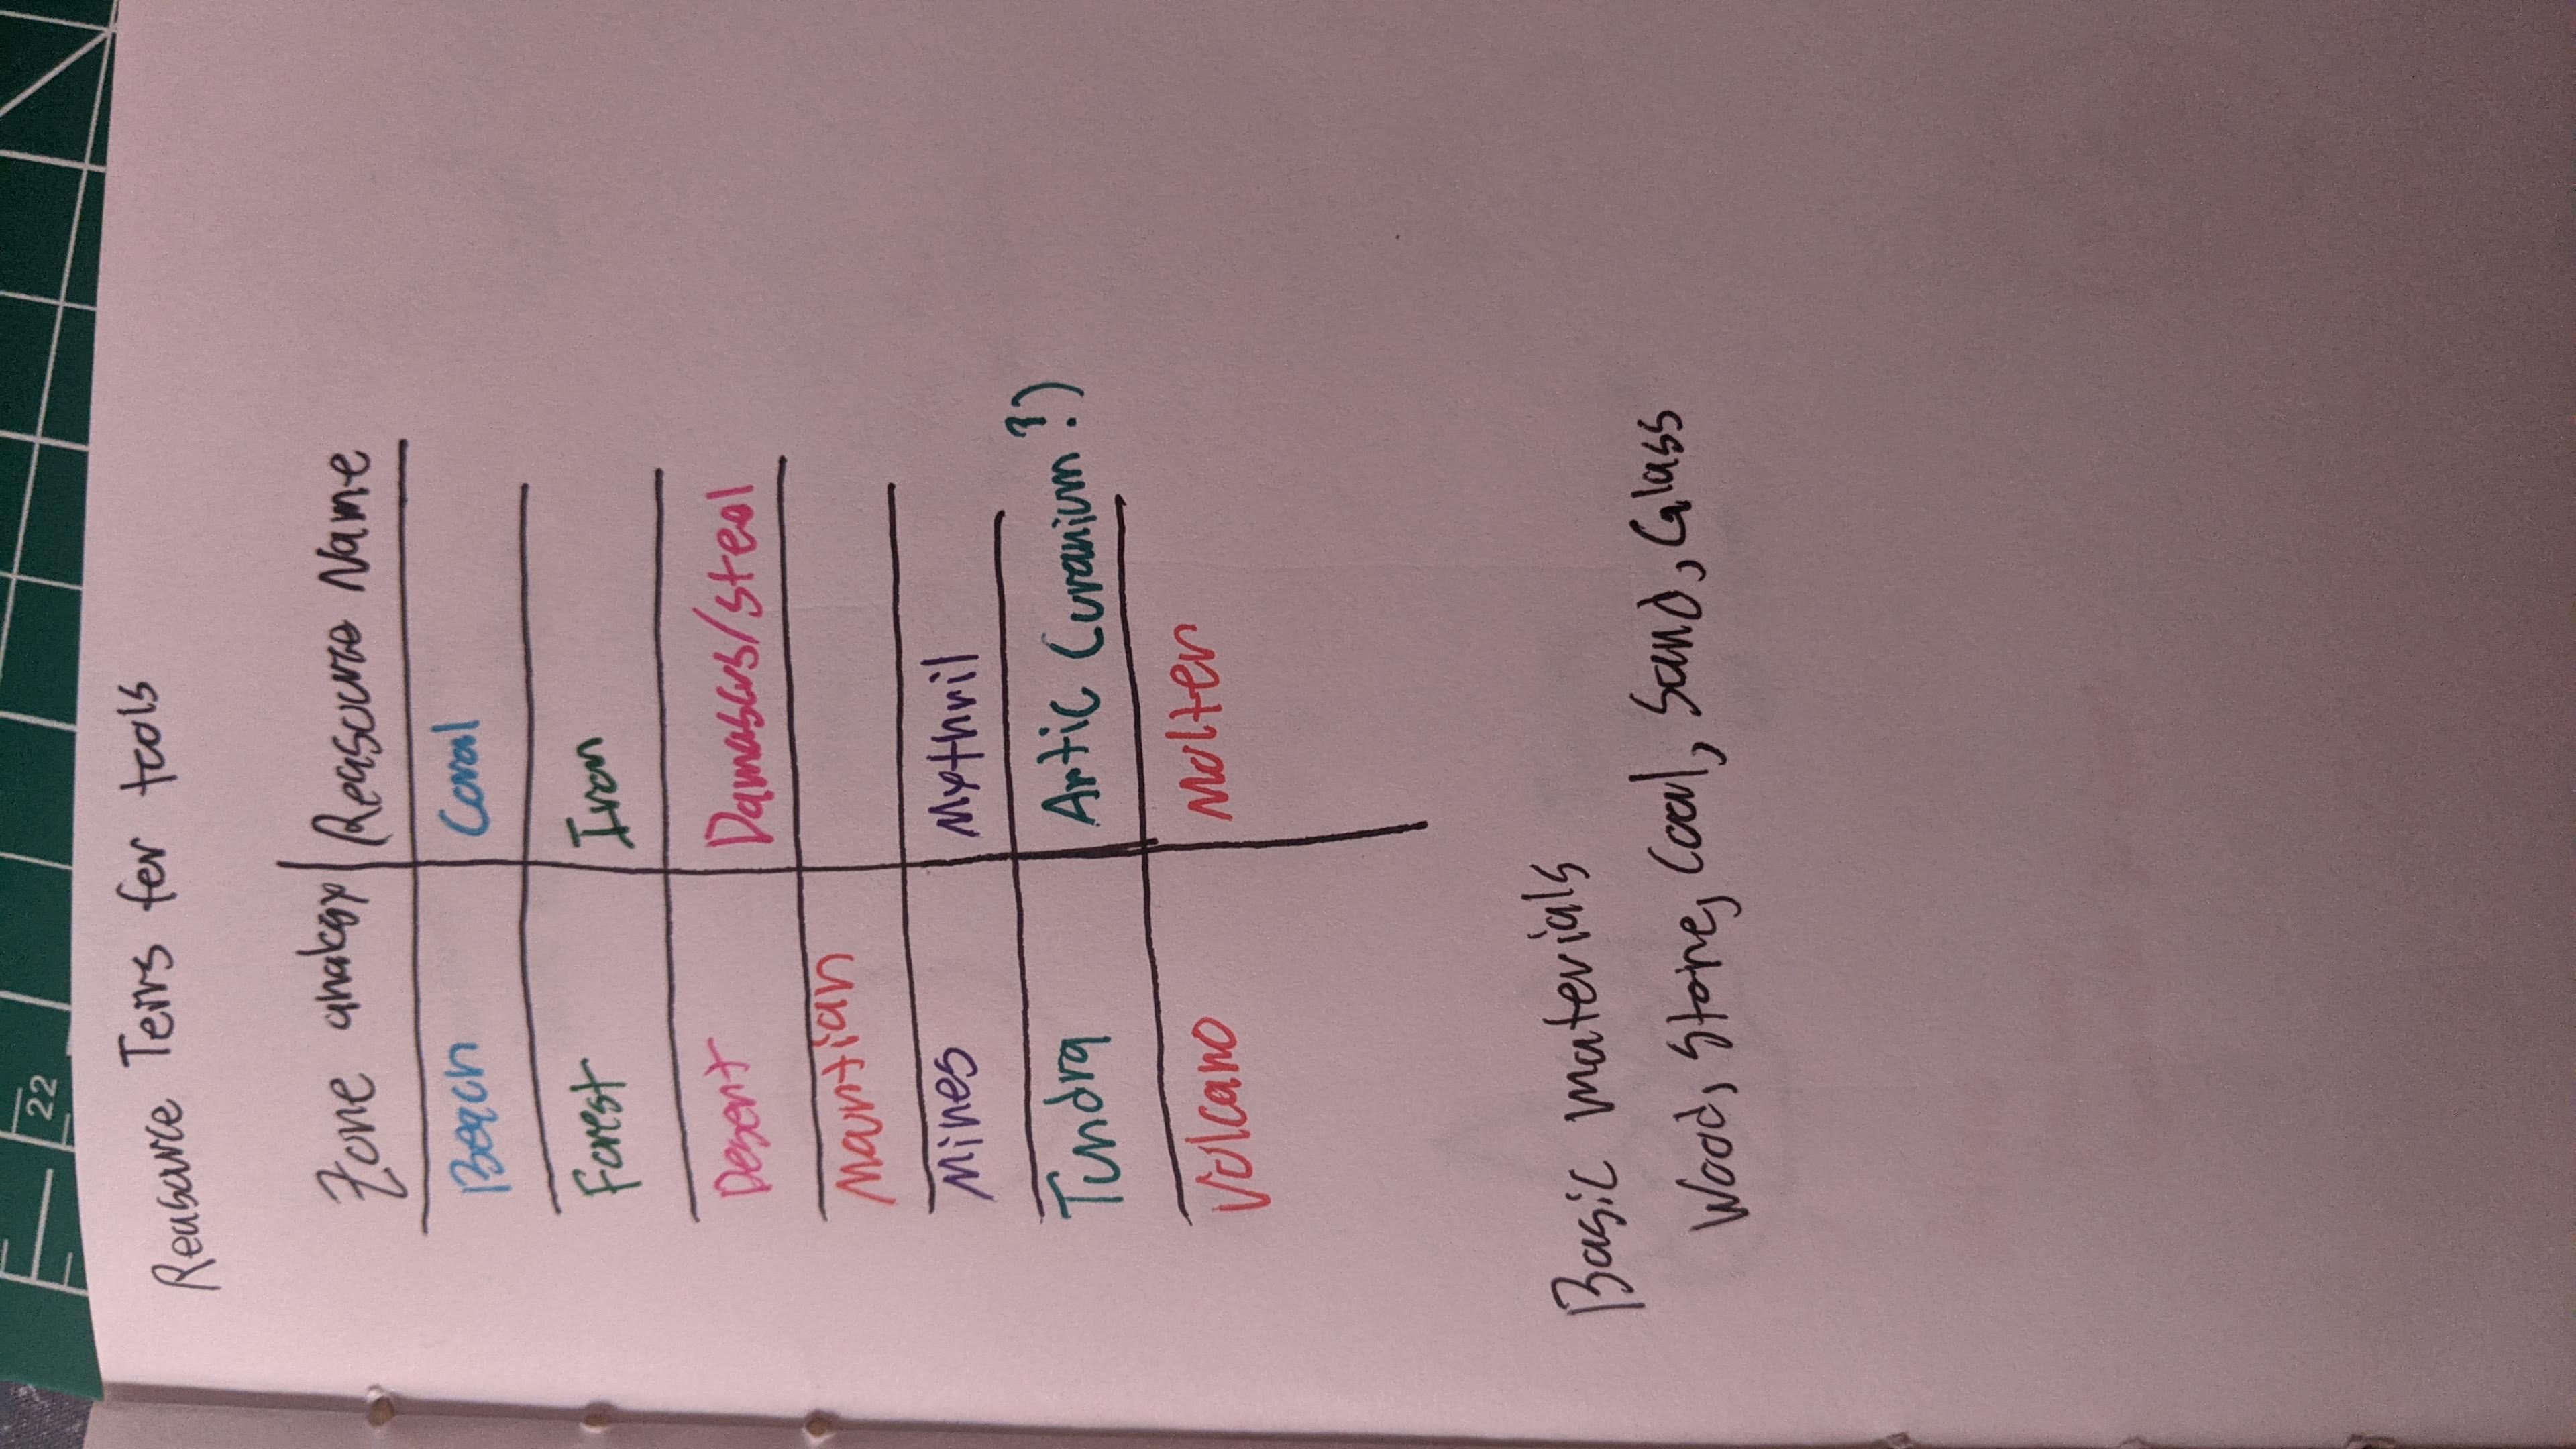 22
Reasource Teirs for tools
Zone analogy Reasource Name
Beach Coral
Forest Iron
Desert Damascus/steel
Martian
Mines Mythril
Tundra Artic (uranium?)
Volcano Molten
Basic materials
Wood, Stone, Coal, Sand, Glass